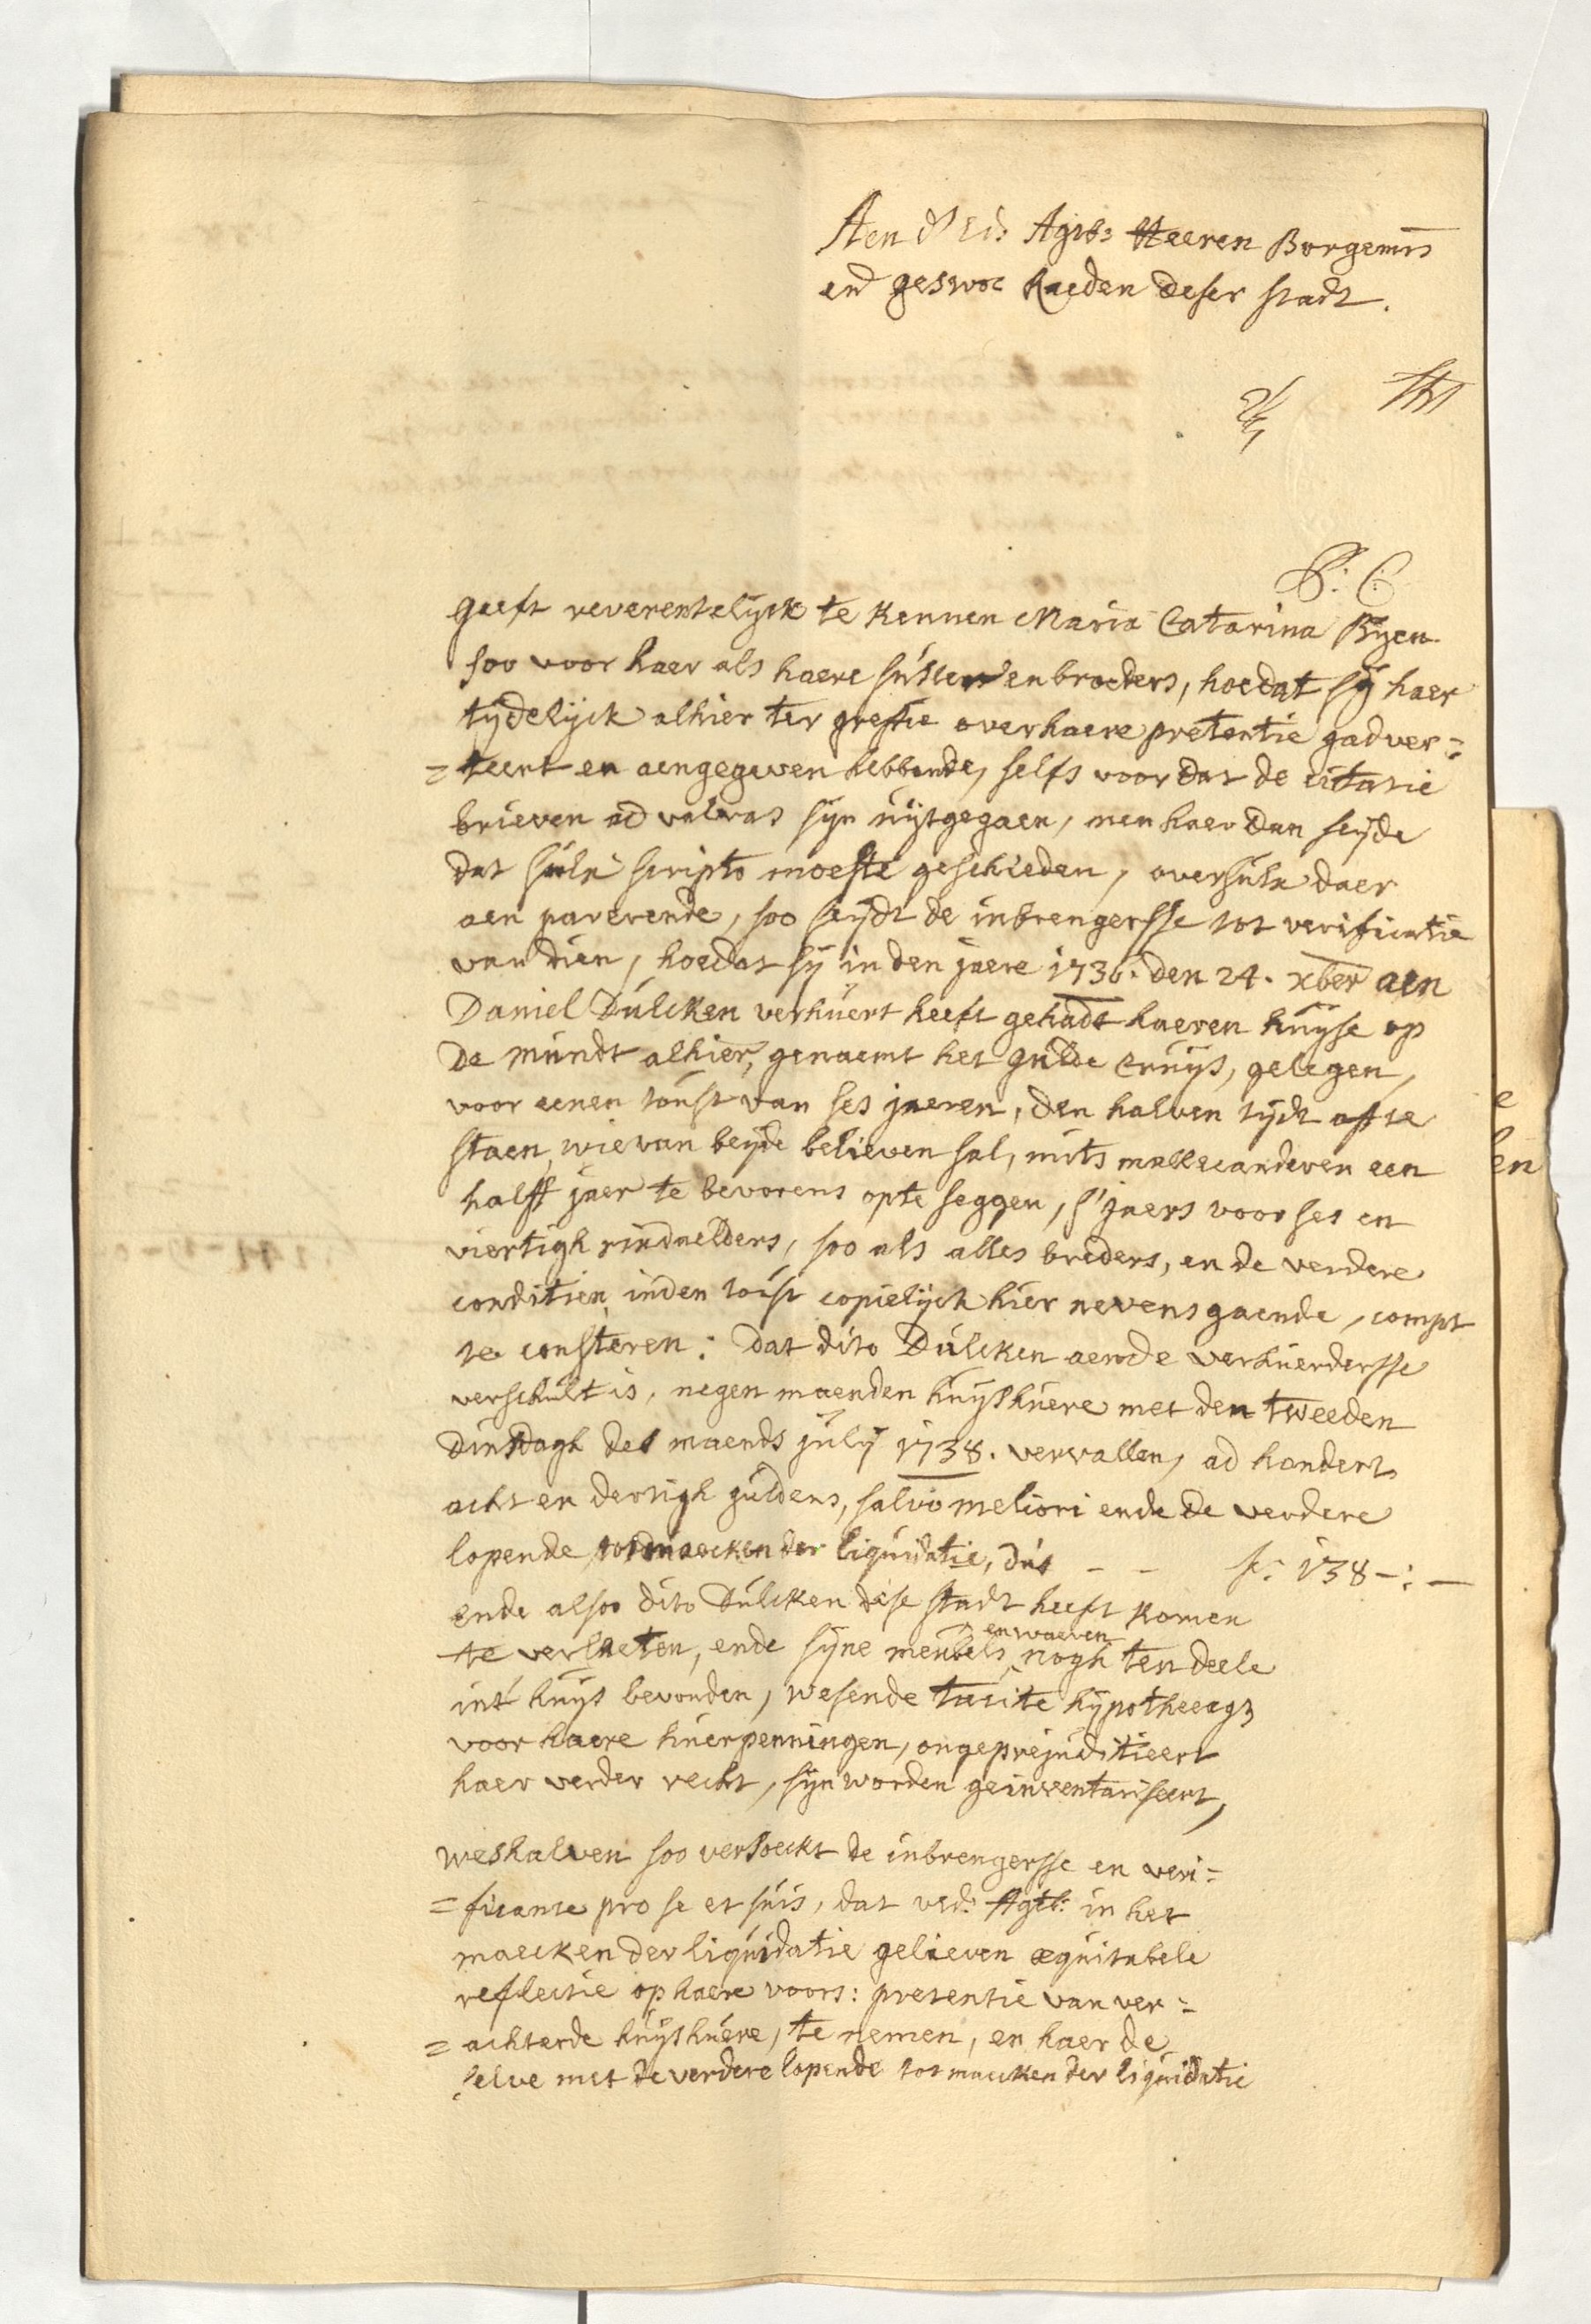 Aen d' Ed: Agtb: Heeren Borgemrs
end geswoe Raeden deser stadt.
P: C
geeft reverentelijck te kennen Maria Catarina Rijen
soo voor haer als haere susters en broeders, hoedat sij haer
tijdelijck alhier ter greffie over haere pretentie gadver=
=teert en aengegeven hebbende, selfs voor dat de citatie
brieven ad valvas sijn uijtgegaen, men haer dan seijde
dat sulx scripto moeste geschieden, oversulx daer
aen parerende, soo seijdt de inbrengersse tot verificatie
van dien, hoedat sij in den jaere 1736. den 24. xber aen
Daniel Dulcken verhuert heeft gehadt haeren huyse op
de mundt alhier, genaemt het gulde cruijs, gelegen,
voor eenen toust van ses jaeren, den halven tijdt aff te
staen, wie van beijde believen sal, mits malkeanderen een
halff jaer te bevorens opte seggen, s'jaers voor ses en
viertigh rixdaelders, soo als alles breders, en de verdere
conditien inden toust copielijck hier nevens gaende, compt
te consteren: dat dito Dulcken aen de verhuerdersse
verschult is, negen maenden huijshuere met den tweeden
dinsdagh des maends julij 1738. vervallen, ad hondert
acht en dertigh guldens, salvo meliori ende de verdere
lopende tot maecken der liquidatie, dus - - f: 138-:-
ende alsoo dito Dulcken dese stadt heeft komen
te verlaeten, ende sijne meubels en waeren nogh ten deele
int huijs bevonden, wesende tacite hijpotheeqz
voor haere huerpenningen, ongeprejuditieert
haer verder recht, sijn worden geinventariseert,
weshalven soo versoeckt de inbrengersse en veri=
=ficante pro se et suis, dat ved: Agtb: in het
maecken der liquidatie gelieven æquitabele
reflectie op haere voors: pretentie van ver=
=achterde huijshuere, te nemen, en haer de
selve met de verdere lopende tot maecken der liquidatie
e
en